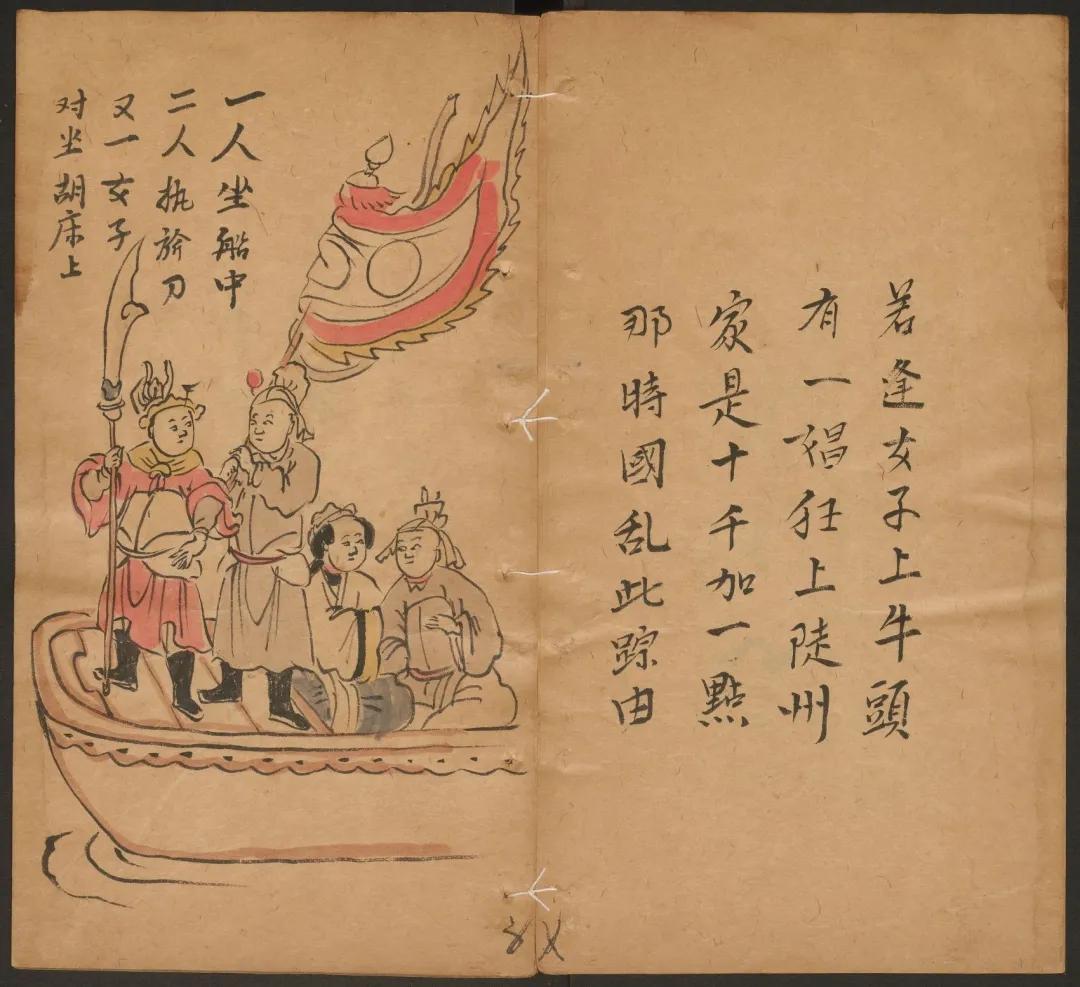 若逢女子上牛頭
有一猖狂上陡州
家是十千加一點
那時國乱此踪由
一人坐船中
二人执旂刀
又一女子
对坐胡床上